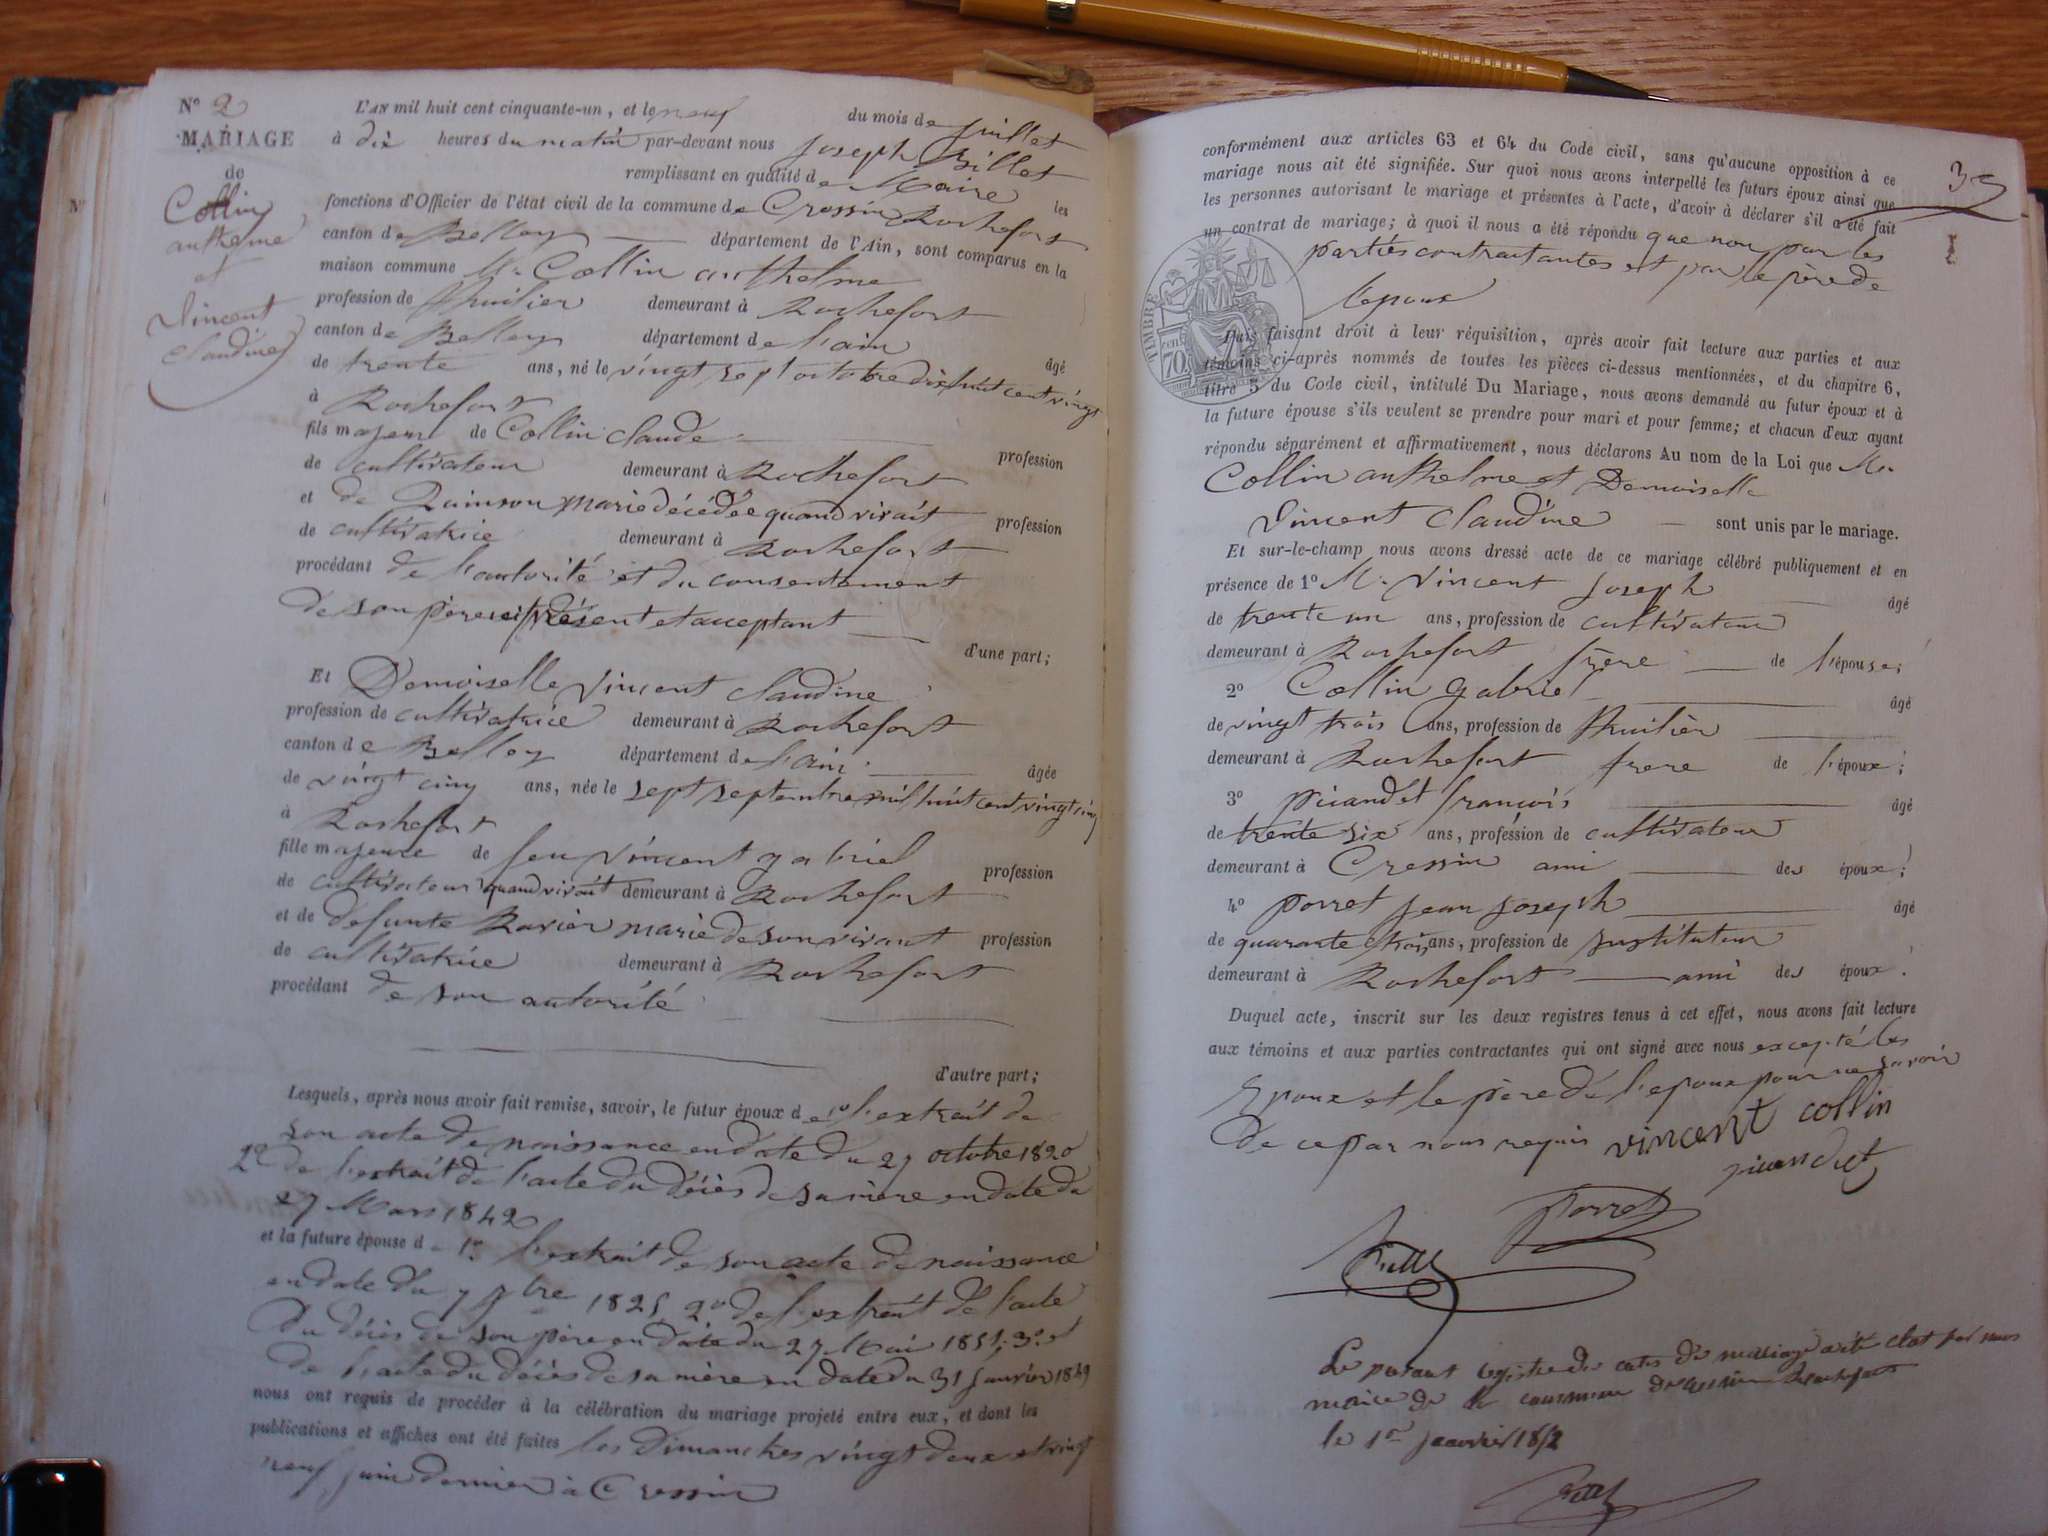 N° 2
MARIAGE
de
Collin
anthelme
et
Vincent
Claudine
L'AN mil huit cent cinquante-un, et le neuf du mois de juillet
à dix heures du matin par-devant nous Joseph Billet
remplissant en qualité de Maire les
fonctions d'Officier de l'état civil de la commune de Cressin Rochefort
canton de Belley département de l'Ain, sont comparus en la
maison commune Mr Collin anthelme
profession de thuilier demeurant à Rochefort
canton de Belley département de l'ain âgé
de trente ans, né le vingt sept octobre dix huit cent vingt
à Rochefort
fils majeur de Collin Claude profession
de cultivateur demeurant à Rochefort
et de Quinson marie décédée quand vivait profession
de cultivatrice demeurant à Rochefort
procédant de l'autorité et du consentement
de son père ici présent et acceptant
d'une part;
Et Demoiselle Vincent Claudine
profession de cultivatrice demeurant à Rochefort
canton de Belley département de l'ain âgée
de vingt cinq ans, née le sept septembre mil huit cent vingt cinq
à Rochefort
fille majeure de feu Vincent gabriel profession
de cultivateur quand vivait demeurant à Rochefort
et de defunte Ravier marie de son vivant profession
de cultivatrice demeurant à Rochefort
procédant de son autorité
d'autre part;
Lesquels, après nous avoir fait remise, savoir, le futur époux de 1° l'extrait de
son acte de naissance en date du 27 octobre 1820
2° de l'extrait de l'acte du décès de sa mère en date du
27 Mars 1842
et la future épouse de 1° l'extrait de son acte de naissance
en date du 7 7bre 1825, 2° de l'extrait de l'acte
du décès de son père en date du 27 Mai 1851, 3° et
de l'acte du décès de sa mère en date du 31 janvier 1849
nous ont requis de procéder à la célébration du mariage projeté entre eux, et dont les
publications et affiches ont été faites les Dimanches vingt deux et vingt
neuf juin dernier à Cressin
35
conformément aux articles 63 et 64 du Code civil, sans qu'aucune opposition à ce
mariage nous ait été signifiée. Sur quoi nous avons interpellé les futurs époux ainsi que
les personnes autorisant le mariage et présentes à l'acte, d'avoir à déclarer s'il a été fait
un contrat de mariage; à quoi il nous a été répondu que non par les
parties contractantes et par le père de
l'epoux
TIMBRE
70
Puis faisant droit à leur réquisition, après avoir fait lecture aux parties et aux
témoins ci-après nommés de toutes les pièces ci-dessus mentionnées, et du chapitre 6,
titre 5 du Code civil, intitulé Du Mariage, nous avons demandé au futur époux et à
la future épouse s'ils veulent se prendre pour mari et pour femme; et chacun d'eux ayant
répondu séparément et affirmativement, nous déclarons Au nom de la Loi que Mr
Collin anthelme et Demoiselle
Vincent Claudine sont unis par le mariage.
Et sur-le-champ nous avons dressé acte de ce mariage célébré publiquement et en
présence de 1° Mr Vincent Joseph âgé
de trente un ans, profession de cultivateur
demeurant à Rochefort frère de l'épouse;
2° Collin gabriel âgé
de vingt trois ans, profession de thuilier
demeurant à Rochefort frere de l'époux;
3° picandet françois âgé
de trente six ans, profession de cultivateur
demeurant à Cressin ami des époux;
4° porret jean joseph âgé
de quarante trois ans, profession de Instituteur
demeurant à Rochefort ami des époux.
Duquel acte, inscrit sur les deux registres tenus à cet effet, nous avons fait lecture
aux témoins et aux parties contractantes qui ont signé avec nous excepté les
Epoux et le père de l'epoux pour ne savoir
de ce par nous requis vincent collin
picandet
Porret
Billet
Le présent registre des actes de mariage a été clot par nous
maire de la commune de Cressin Rochefort
le 1er janvier 1852
Billet